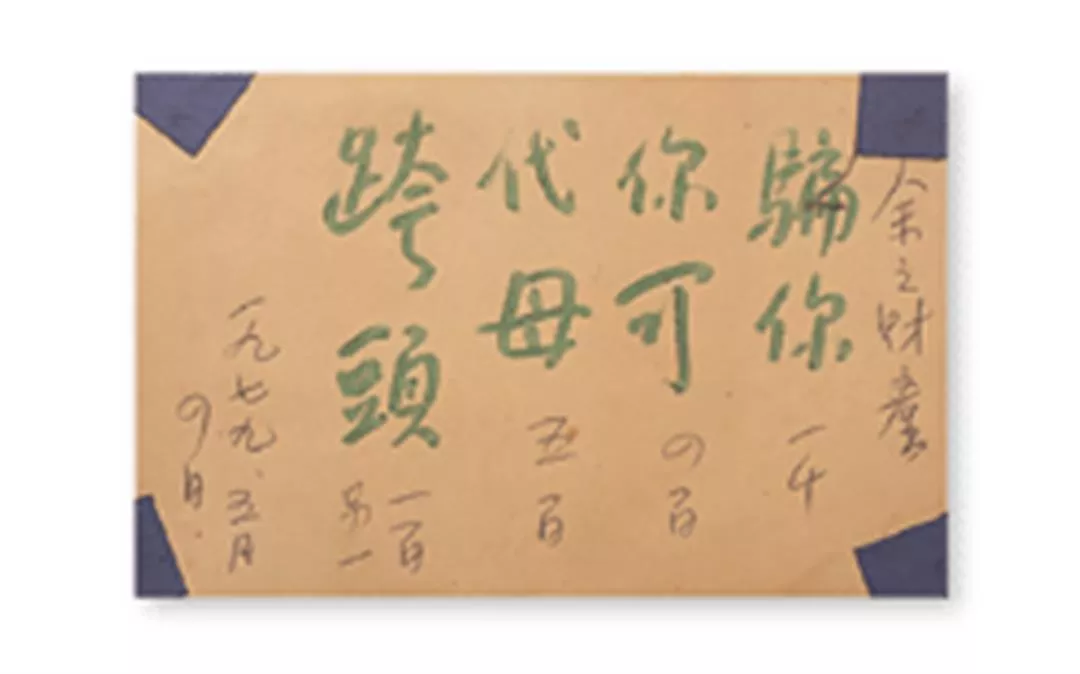 余之財產
騙你 一千
你可 の百
代母 五百
跨頭 一百
另一
一九七九、五月
の日.